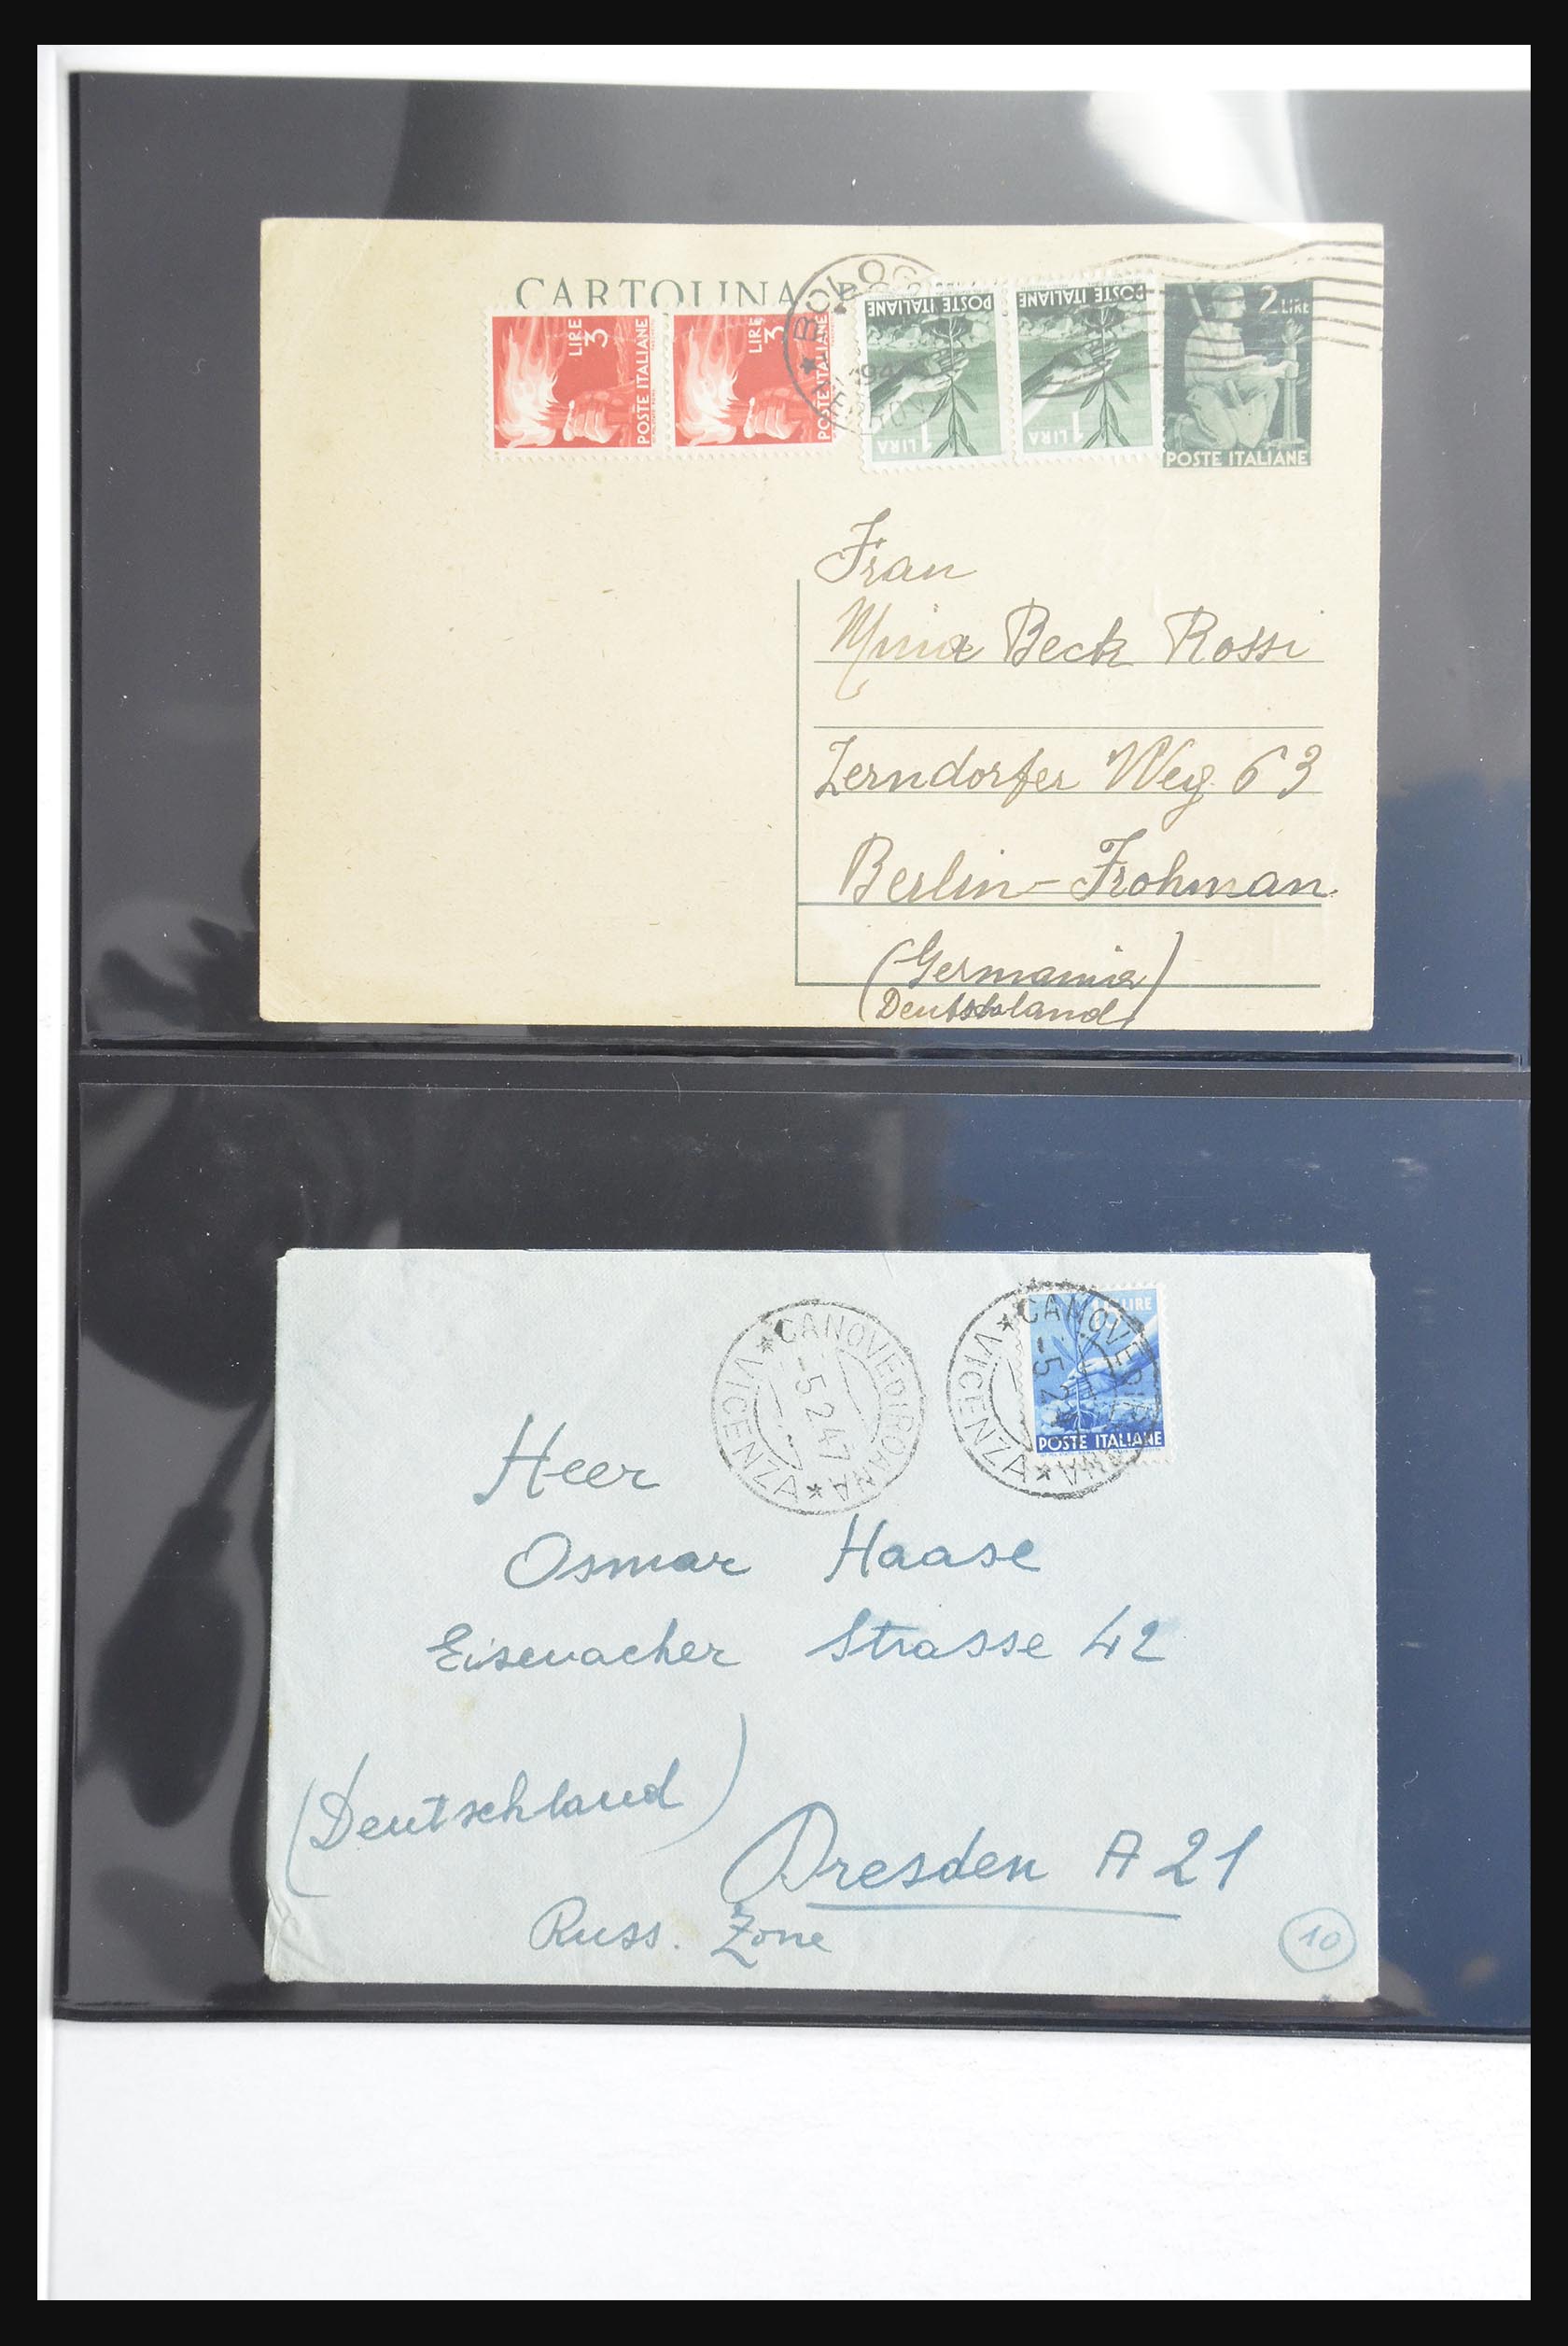 CARTOLINA
BOLOG
LIRE 3
POSTE ITALIANE
LIRE 3
POSTE ITALIANE
POSTE ITALIANE
1 LIRA
POSTE ITALIANE
1 LIRA
2 LIRE
POSTE ITALIANE
Frau
Beck Rossi
Zerndorfer Weg 63
Berlin-Frohman
(Germania)
(Deutschland)
★ CANOVE DI ROANA ★ VICENZA
-5.2.47
★ CANOVE DI ROANA ★ VICENZA
-5.2.
LIRE
POSTE ITALIANE
Heer
Osmar Haase
Eisenacher Strasse 42
(Deutschland)
Dresden A 21
Russ. Zone
10